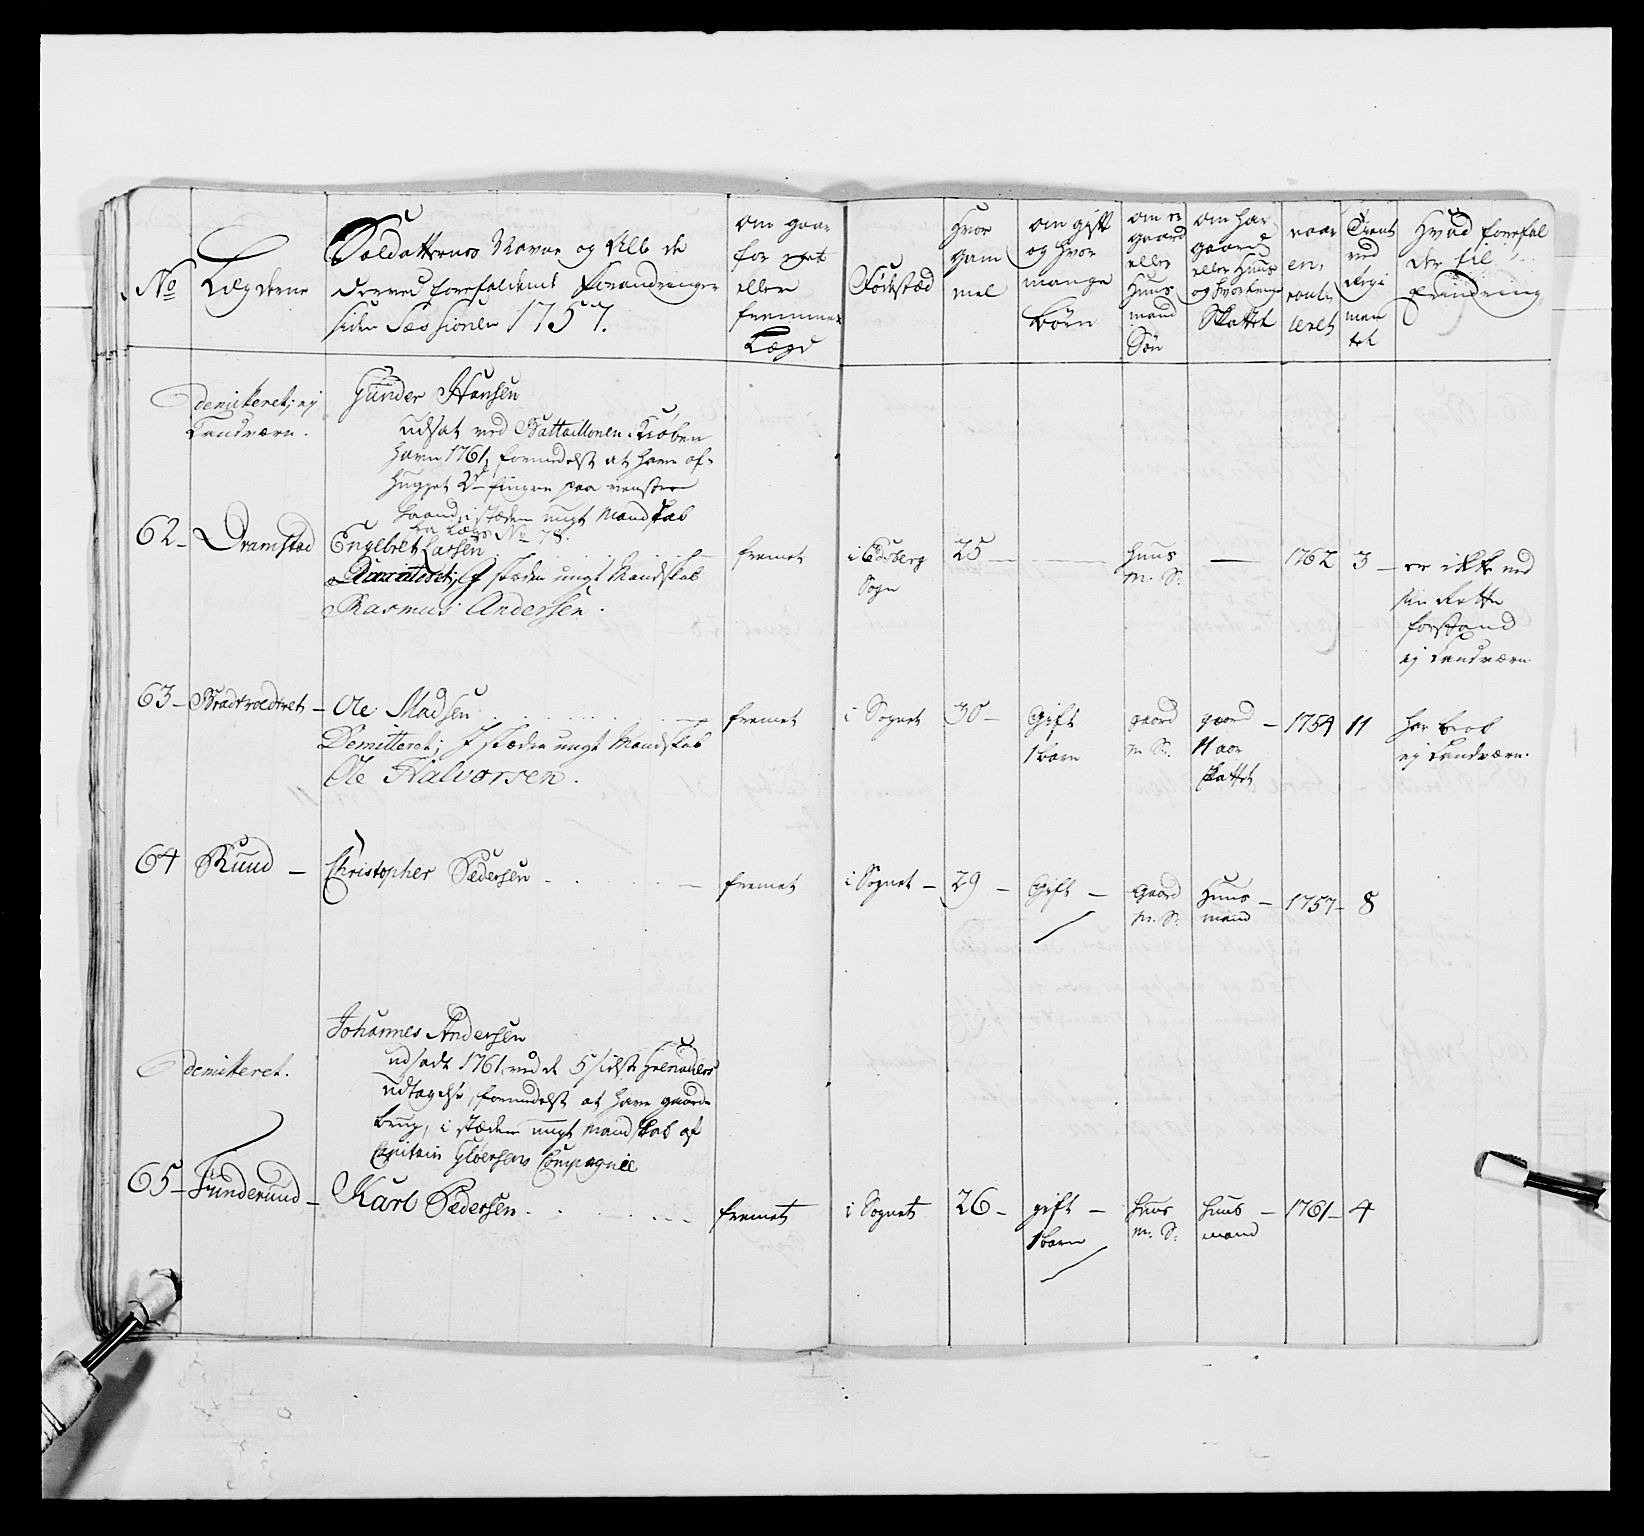 No
Lægderne
Soldatternes Navne og Alle de
derved forefaldene Forandringer
siden Sessionen 1757.
om gaar
for eget
eller
fremmet
Lægd
Fødested
Hvor
gam
mel
om gift
og hvor
mange
børn
om er
gaard
eller
Huus
mand
Søn
om har
gaard
eller Huus
og hvorlenge
Skattet
naar
en,
roule,
leret
Tient
ved
Regi
men
tet
Hvad forefal
der til
Erindring
demitteret; ej
Landværn.
Gunder Hansen
udsat ved Battaillonen i Kiøben
havn 1761, formedelst at have af-
hugget 2de fingre paa venstre
haand, i stæden ungt Mandskab
fra Lægd No 78.
62 - Dramstad
Engebret Larsen
Demitteret; J stæden ungt Mandskab
Rasmus Andersen.
fremet
i Edsberg
Sogn
25 -
Huus
m. S:
1762
3 -
er ikke ved
sin Rette
forstand
ej Landværn
63 - Bradtvoldtret -
Ole Madsen
Demitteret; J stæden ungt Mandskab
Ole Halvorsen.
fremet
i Sognet
30 -
Gift
1 barn
gaard
m. S:
gaard -
11 aar
skattet
1754
11
har brok
ej Landværn.
64 Ruud -
Christopher Pedersen
fremet
i Sognet -
29 -
Gift -
Gaard
m. S:
Huus -
mand
1757 -
8
demitteret.
Johannes Andersen
udsadt 1761, ved de 5 sidste Grenaders
udtagelse, formedelst at have gaards
brug, i stæden ungt Mandskab af
Capitain Gløersens Compagnie
65 - Funderuud -
Karl Pedersen
fremet
i Sognet
26 -
gift -
1 barn
huus
m. S:
huus -
mand
1761 -
4